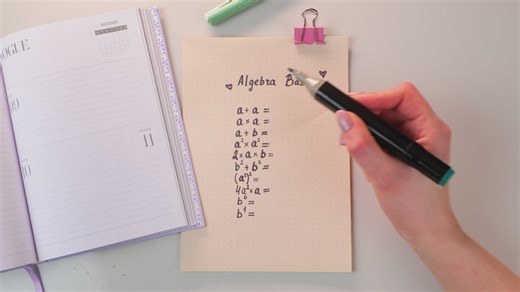 OGUE
10
11
Algebra Ba
a + a =
a × a =
a + b =
a² × a² =
2 × a × b =
b² + b² =
(a²)² =
4a² × a =
b⁰ =
b¹ =